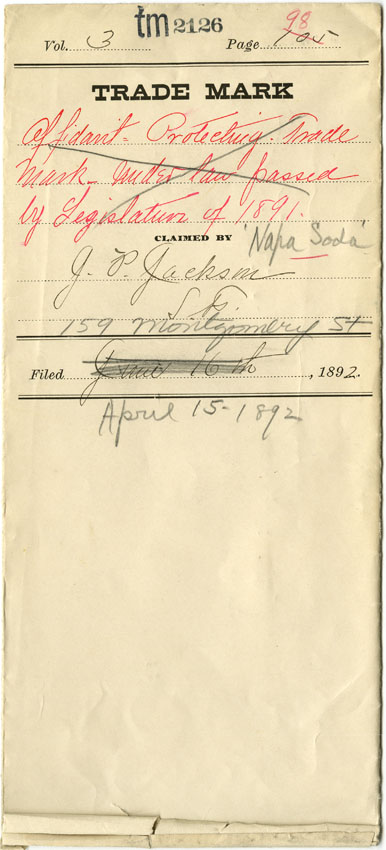 tm 2126
98
Vol. 3 Page 105
TRADE MARK
Affidavit - Protecting Trade
Mark - under law passed
by Legislature of 1891.
CLAIMED BY 'Napa Soda'
J. P. Jackson
S. F.
159 Montgomery St
Filed June 16th, 1892.
April 15 - 1892